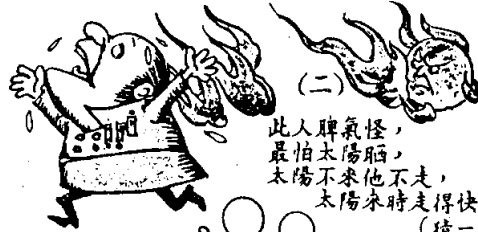 (二)
此人脾氣怪，
最怕太陽晒，
太陽不來他不走，
太陽來時走得快
(猜一